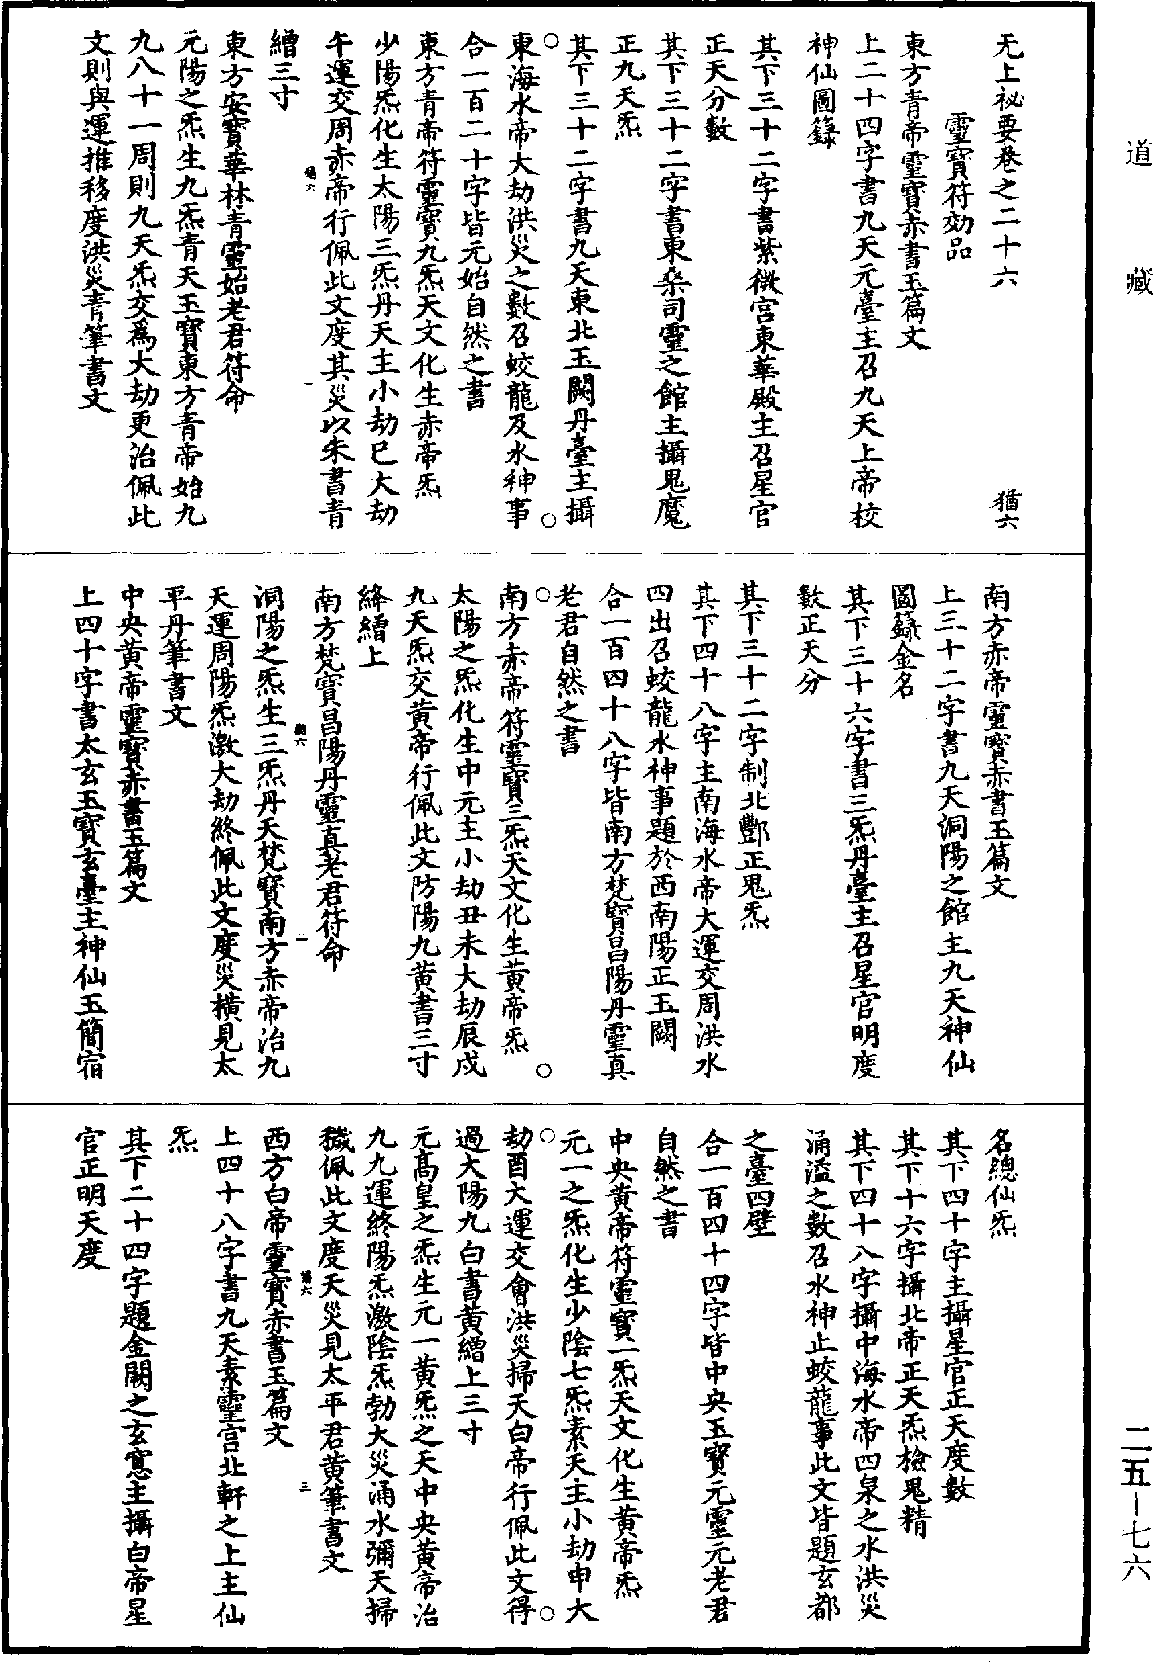 道藏
无上祕要卷之二十六　猶六
靈寶符効品
東方青帝靈寶赤書玉篇文
上二十四字書九天元臺主召九天上帝校
神仙圖籙
其下三十二字書紫微宮東華殿主召星官
正天分數
其下三十二字書東桑司靈之館主攝鬼魔
正九天炁
其下三十二字書九天東北玉闕丹臺主攝
東海水帝大劫洪災之數召蛟龍及水神事
合一百二十字皆元始自然之書
東方青帝符靈寶九炁天文化生赤帝炁
少陽炁化生太陽三炁丹天主小劫巳大劫
午運交周赤帝行佩此文度其災以朱書青
猶六　一
繒三寸
東方安寶華林青靈始老君符命
元陽之炁生九炁青天玉寶東方青帝始九
九八十一周則九天炁交爲大劫更治佩此
文則與運推移度洪災青筆書文
南方赤帝靈寶赤書玉篇文
上三十二字書九天洞陽之館主九天神仙
圖籙金名
其下三十六字書三炁丹臺主召星官明度
數正天分
其下三十二字制北酆正鬼炁
其下四十八字主南海水帝大運交周洪水
四出召蛟龍水神事題於西南陽正玉闕
合一百四十八字皆南方梵寶昌陽丹靈真
老君自然之書
南方赤帝符靈寶三炁天文化生黃帝炁
太陽之炁化生中元主小劫丑未大劫辰戌
九天炁交黃帝行佩此文防陽九黃書三寸
絳繒上
南方梵寶昌陽丹靈真老君符命
猶六　二
洞陽之炁生三炁丹天梵寶南方赤帝治九
天運周陽炁激大劫終佩此文度災橫見太
平丹筆書文
中央黃帝靈寶赤書玉篇文
上四十字書太玄玉寶玄臺主神仙玉簡宿
名總仙炁
其下四十字主攝星官正天度數
其下十六字攝北帝正天炁檢鬼精
其下四十八字攝中海水帝四泉之水洪災
涌溢之數召水神止蛟龍事此文皆題玄都
之臺四壁
合一百四十四字皆中央玉寶元靈元老君
自然之書
中央黃帝符靈寶一炁天文化生黃帝炁
元一之炁化生少陰七炁素天主小劫申大
劫酉大運交會洪災掃天白帝行佩此文得
過大陽九白書黃繒上三寸
元高皇之炁生元一黃炁之天中央黃帝治
九九運終陽炁激陰炁勃大災涌水彌天掃
穢佩此文度天災見太平君黃筆書文
猶六　三
西方白帝靈寶赤書玉篇文
上四十八字書九天素靈宮北軒之上主仙
炁
其下二十四字題金闕之玄窻主攝白帝星
官正明天度
二五—七六